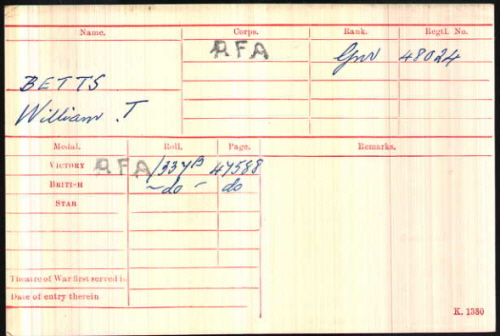 Name. Corps. Rank. Regtl. No.
RFA Gnr 48024
BETTS
William .T
Medal. Roll. Page. Remarks.
VICTORY RFA/337B 47588
BRITISH -do- do
STAR
Theatre of War first served in
Date of entry therein
K. 1380